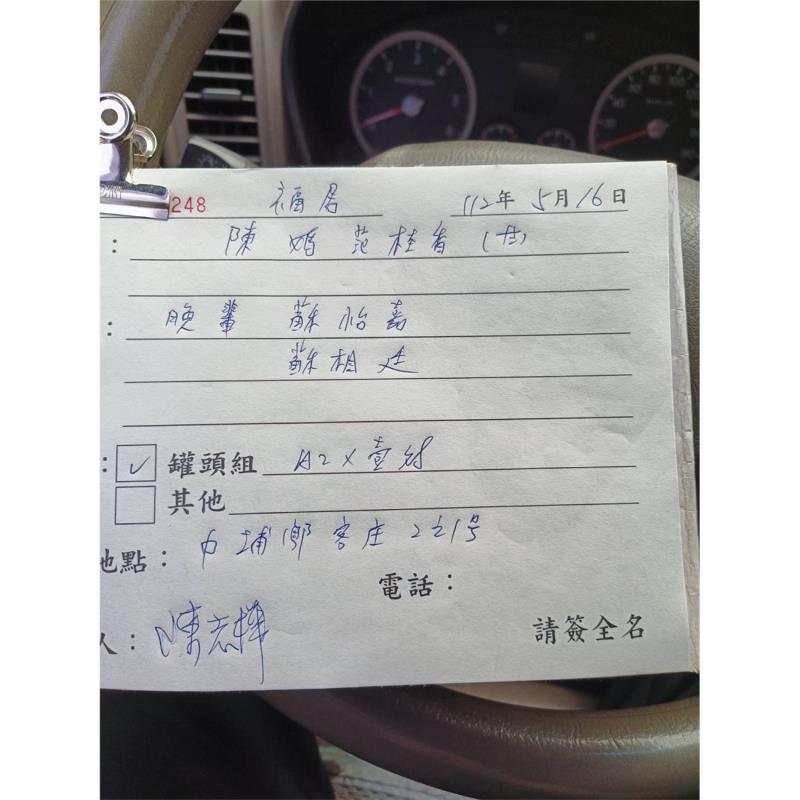 248 福居 112年 5月16日
: 陳媽范桂香
: 晚輩 蘇怡嘉
蘇相廷
: ✓ 罐頭組 A2 x 壹対
其他
地點: 內埔鄉客庄2之1号
電話:
人: 陳志樺 請簽全名